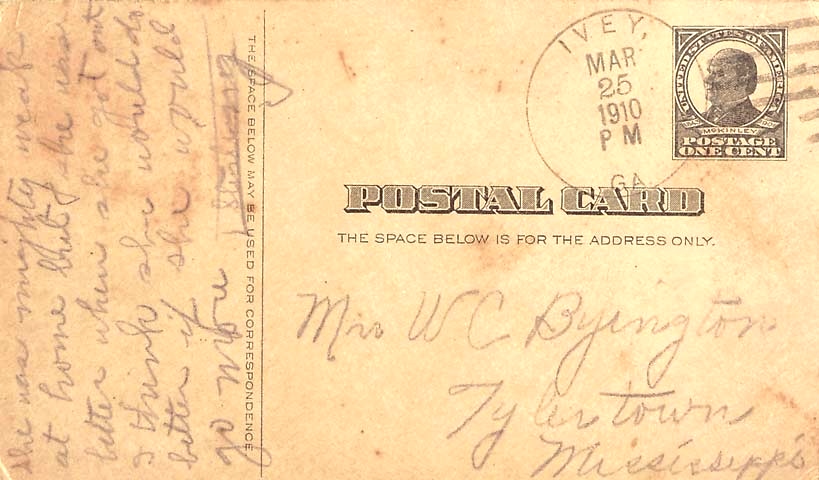 IVEY,
MAR
25
1910
P M
GA
UNITED STATES OF AMERICA
McKINLEY
POSTAGE
ONE CENT
POSTAL CARD
THE SPACE BELOW IS FOR THE ADDRESS ONLY.
Mrs W C Byington
Tylertown
Mississippi
THE SPACE BELOW MAY BE USED FOR CORRESPONDENCE
She was mighty weak
at home but she was
better when she got out
I think she would do
better if she would
go more